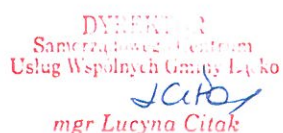 DYREKTOR
Samorządowego Centrum
Usług Wspólnych Gminy Łącko
mgr Lucyna Citak